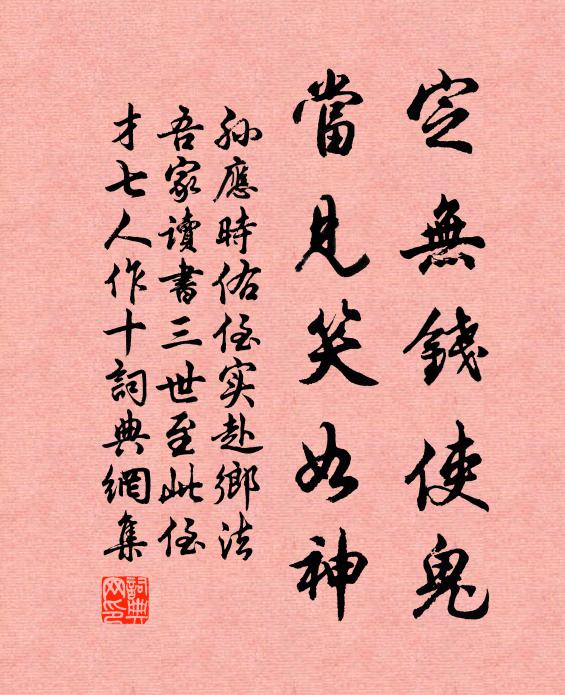 定無錢使鬼
當見笑如神
孫應時佑侄实赴鄉法
吾家讀書三世至此侄
才七人作十詞典網集
詞典网印